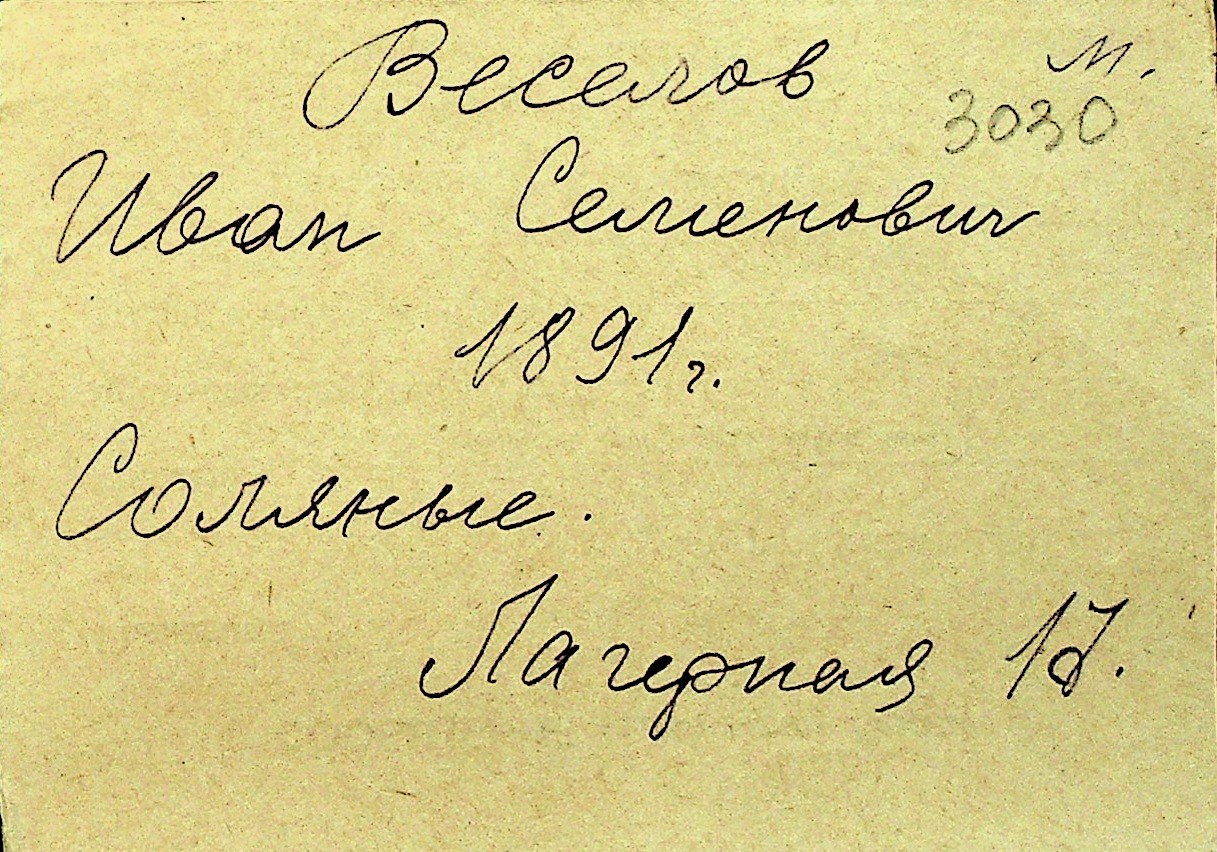 Веселов м.
3030
Иван Семенович
1891г.
Соляные.
Лагерная